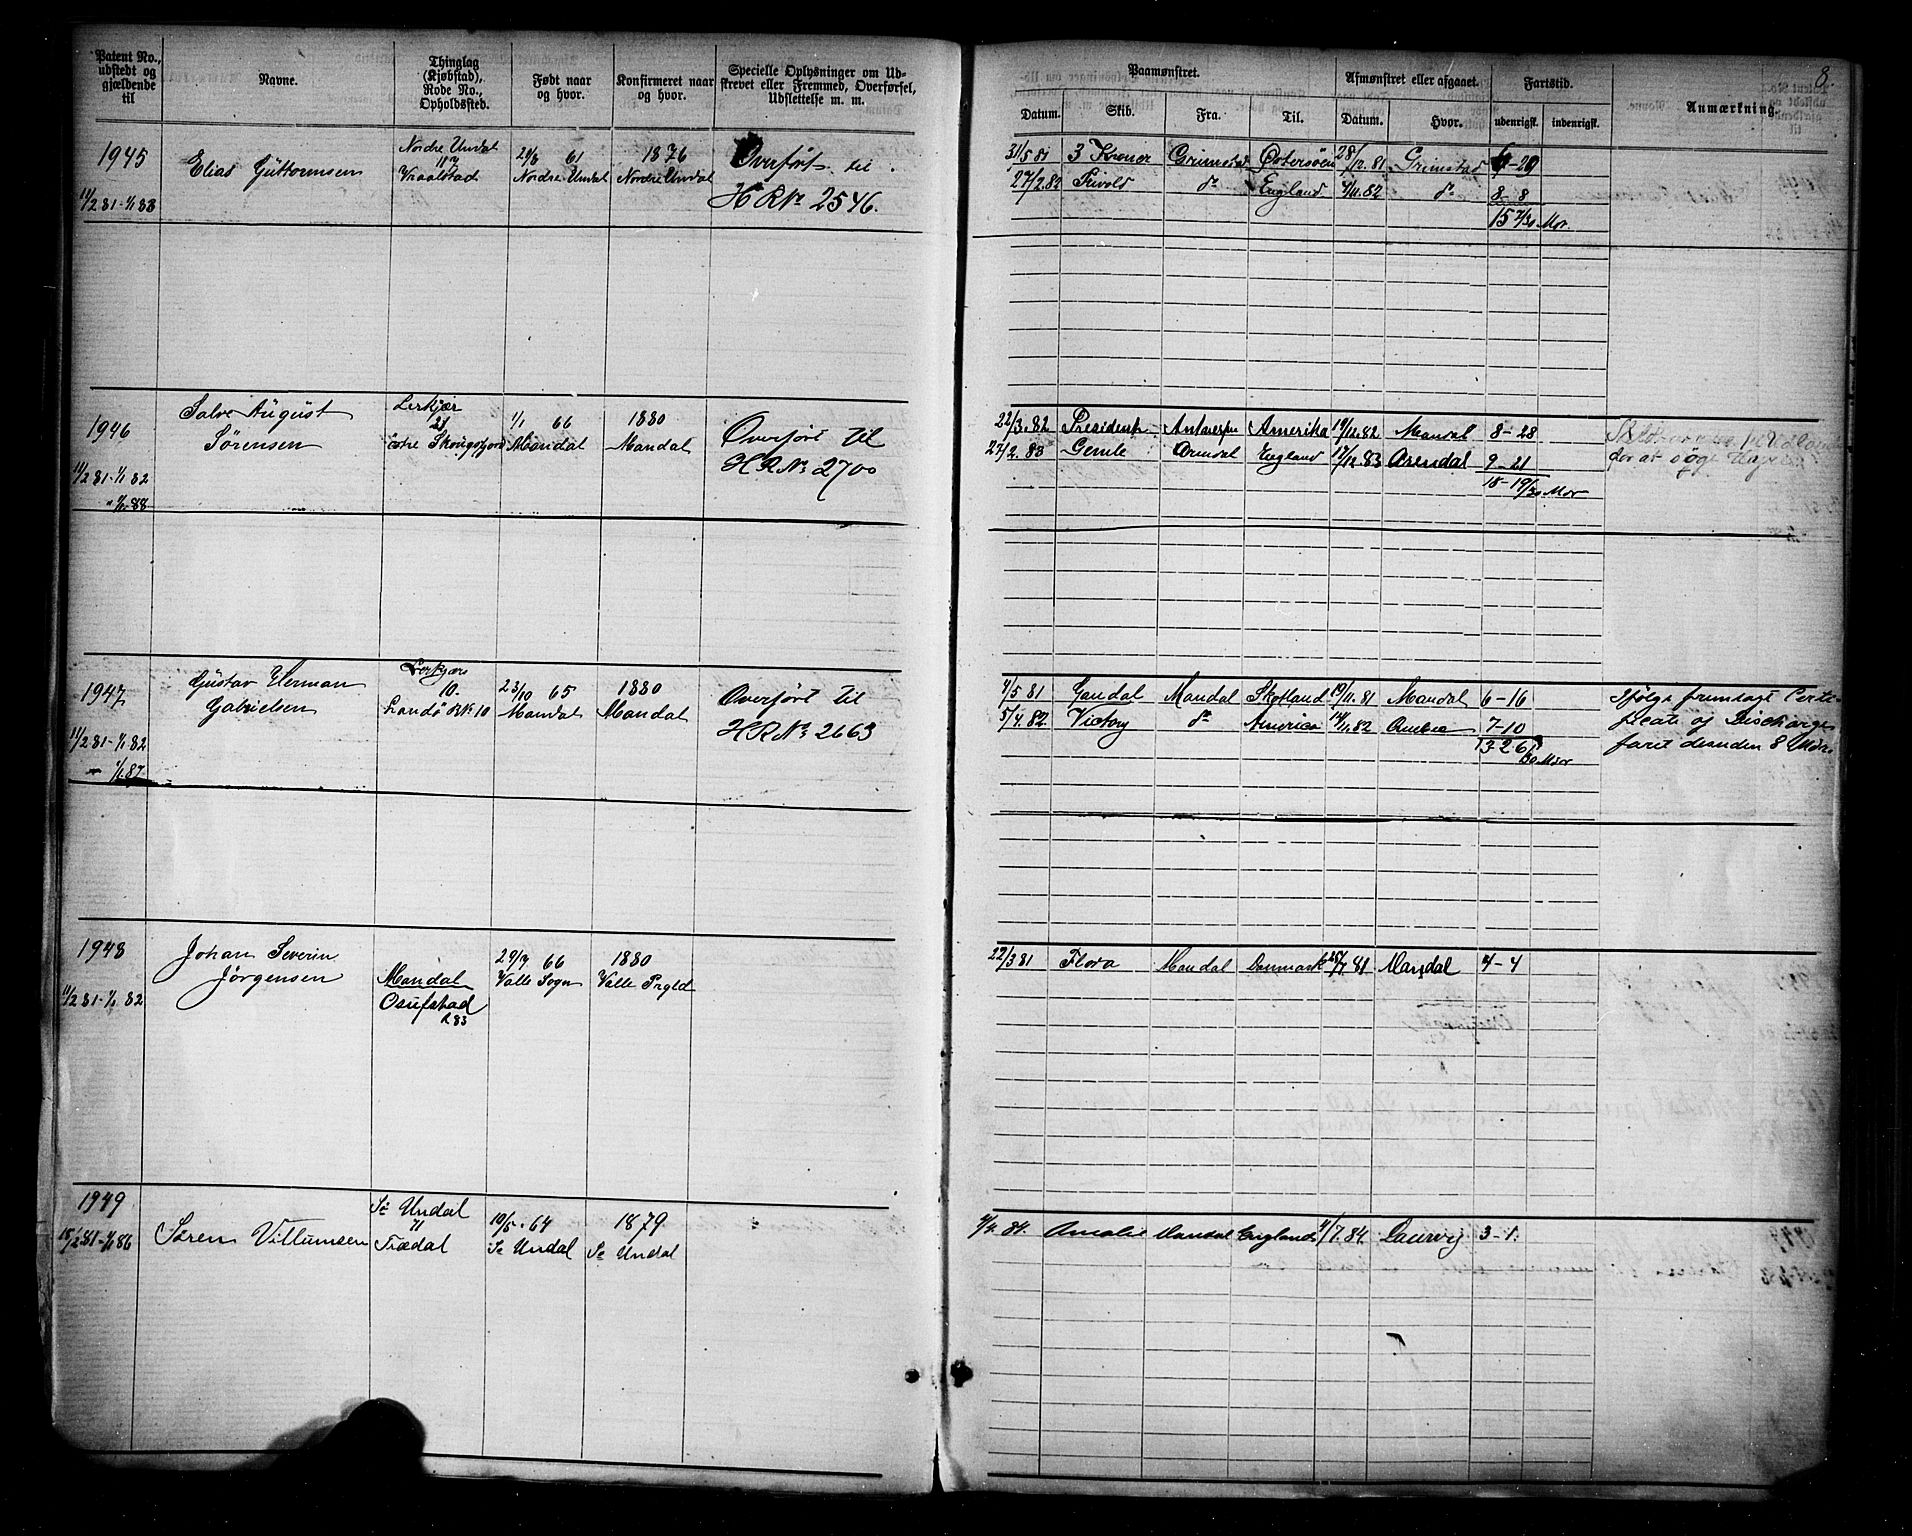 8
Patent No., udstedt og gjældende til
Navne.
Thinglag (Kjøbstad), Rode No., Opholdssted.
Født naar og hvor.
Konfirmeret naar og hvor.
Specielle Oplysninger om Udskrevet eller Fremmed, Overførsel, Udslettelse m. m.
Paamønstret.
Afmønstret eller afgaaet.
Fartstid.
Anmærkning.
Datum.
Skib.
Fra.
Til.
Datum.
Hvor.
udenrigsk.
indenrigsk.
1945
11/2 81-1/1 83
Elias Guttormsen
Nordre Undal
Vraalstad
61
Nordre Undal
1876
Nordre Undal
Overført til
HR No 2546.
31/5 81 3 Kroner Grimstad Østersøen 28/12 81 Grimstad
27/2 82 do England 82 do 8-8
15 7/30 Mdr.
1946
11/2 81-1/1 82
" 1/1 88
Salve August
Sørensen
21
1/1 66
Mandal
1880
Mandal
Overført til
HR No 2700
22/3 82 Antwerpen Amerika 19/12 82 Mandal 8-28
27/2 83 Arendal England 17/12 83 Arendal 9-21
18-19/30 Mdr
for at søge
1947
11/2 81-1/1 82
- 1/1 87
Gustav Herman
Gabrielsen
10.
23/10 65
Mandal
1880
Mandal
Overført til
HR No 2663
4/5 81 Mandal Skotland 19/11 81 Mandal 6-16
5/4 82 Victory do America 14/11 82 7-10
13-26/30 Mdr
Ifølge fremlagt Certificate of Discharge
faret desuden 8 Mdr.
1948
11/2 81-1/1 82
Johan Severin
Jørgensen
Mandal
R 83
66
Valle Sogn
1880
Valle Prgld
22/3 81 Flora Mandal Danmark 81 Mandal 4-4
1949
15/2 81-1/1 86
Søren Villumsen
Sr Undal
71
Trædal
10/5 64
Sr Undal
1879
Sr Undal
84. Amalie Mandal England 4/7 84. Laurvig 3-1.